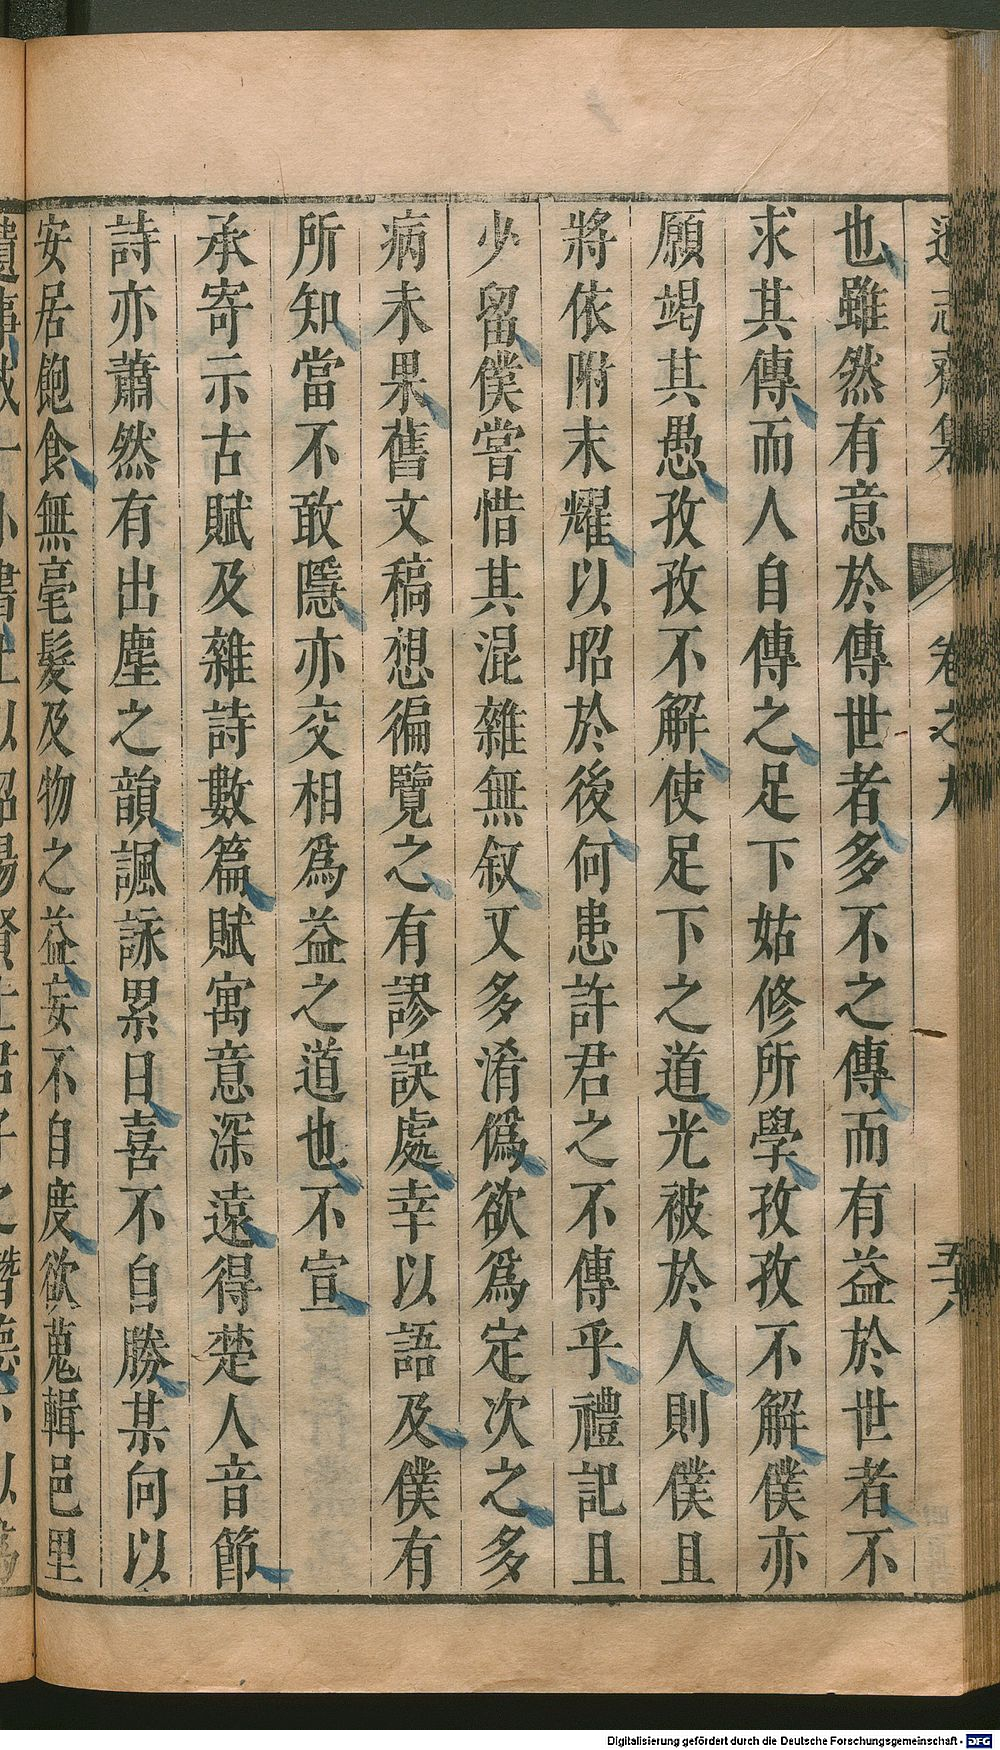 遜志齋集 卷之九 五十八
也雖然有意於傳世者多不之傳而有益於世者不
求其傳而人自傳之足下姑修所學孜孜不解僕亦
願竭其愚孜孜不解使足下之道光被於人則僕且
將依附末耀以昭於後何患許君之不傳乎禮記且
少留僕嘗惜其混雜無叙又多淆僞欲爲定次之多
病未果舊文稿想徧覽之有謬誤處幸以語及僕有
所知當不敢隱亦交相爲益之道也不宣
承寄示古賦及雜詩數篇賦寓意深遠得楚人音節
詩亦蕭然有出塵之韻諷詠累日喜不自勝某向以
安居飽食無毫髮及物之益妄不自度欲蒐輯邑里
Digitalisierung gefördert durch die Deutsche Forschungsgemeinschaft - DFG